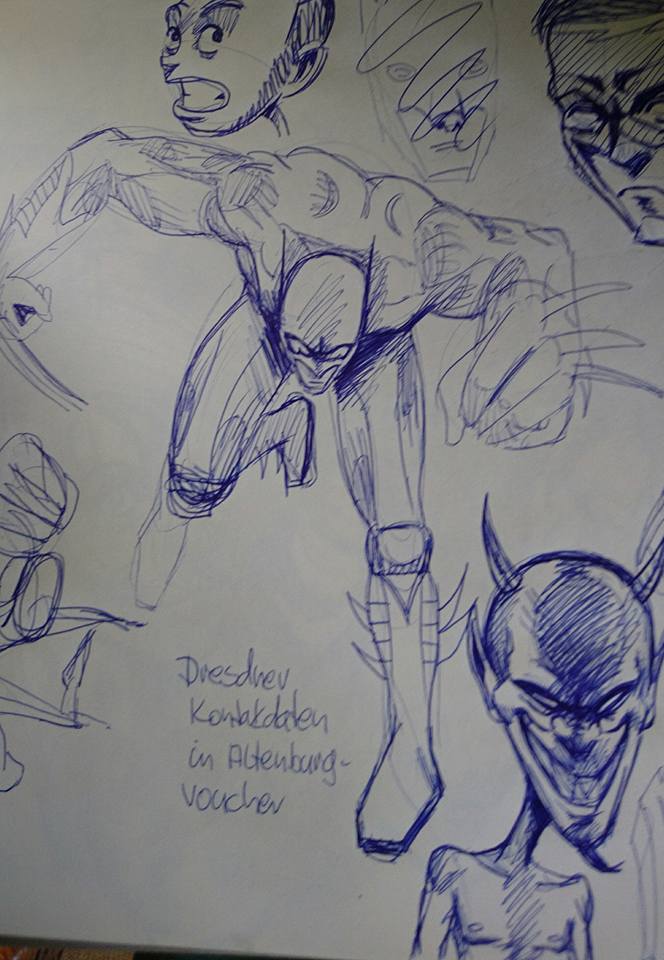 Dresdner
Kontakdaten
in Altenburg-
voucher